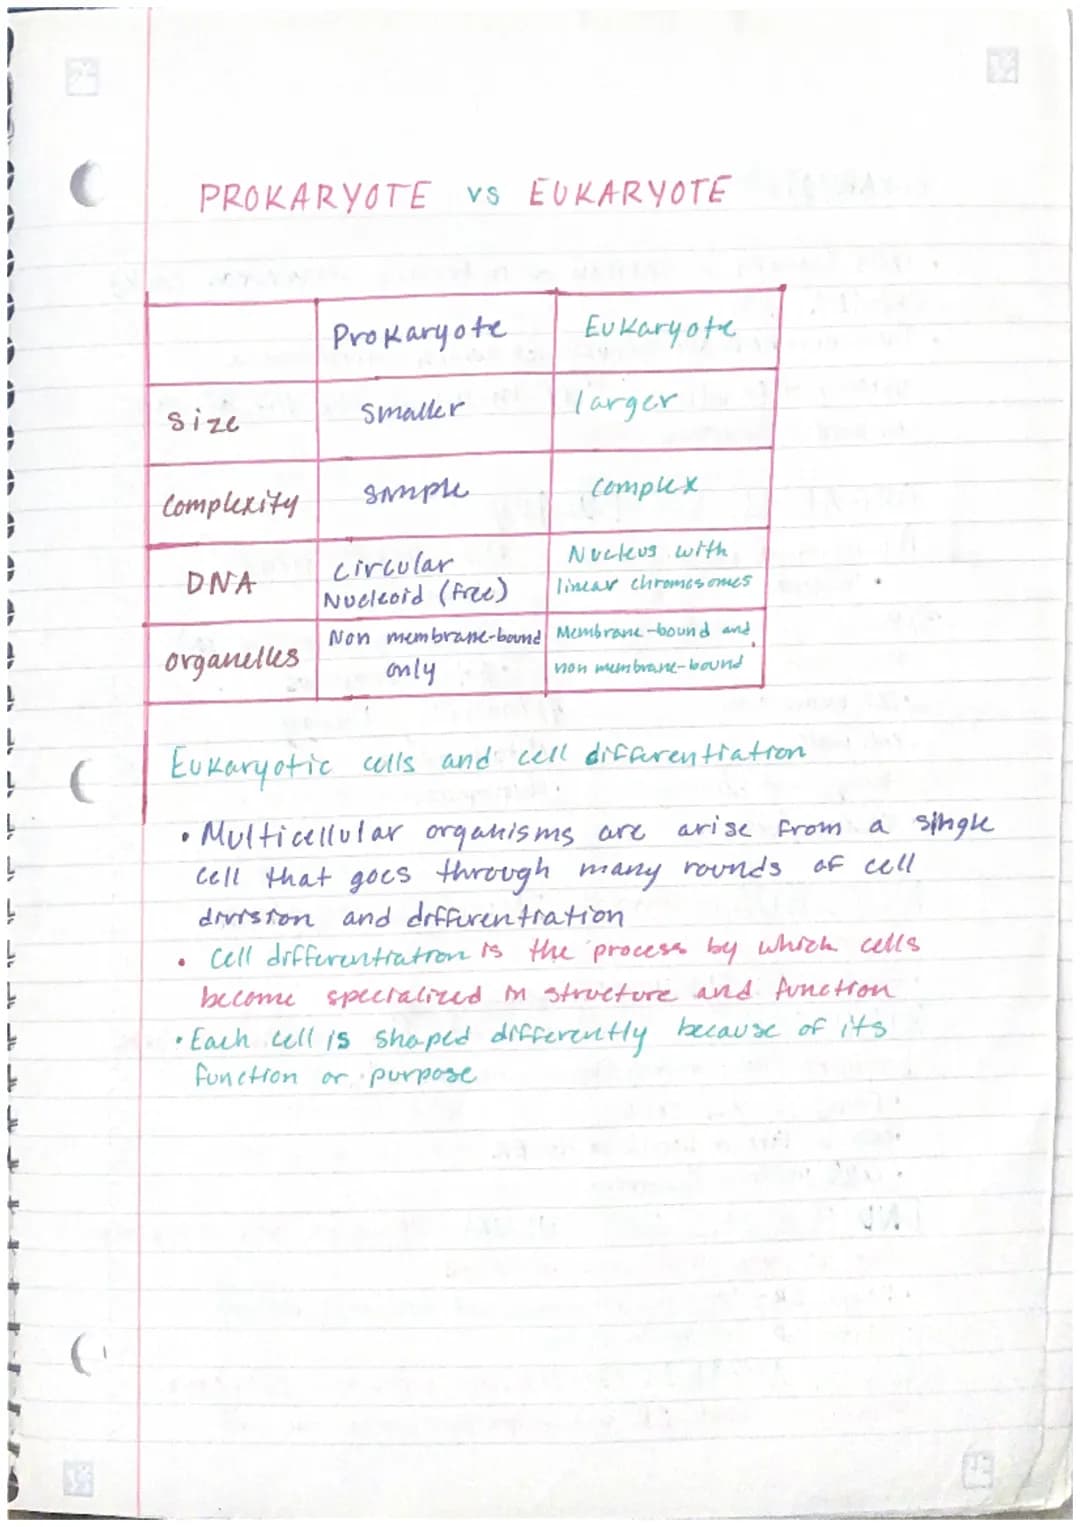 PROKARYOTE vs EUKARYOTE
Prokaryote Eukaryote
Size Smaller larger
Complexity simple Complex
DNA Circular Nucleoid (free) Nucleus with linear chromosomes
organelles Non membrane-bound only Membrane-bound and non membrane-bound
Eukaryotic cells and cell differentiation
• Multicellular organisms are arise from a single
cell that goes through many rounds of cell
division and differentiation
• Cell differentiation is the process by which cells
become specialized in structure and function
• Each cell is shaped differently because of its
function or purpose